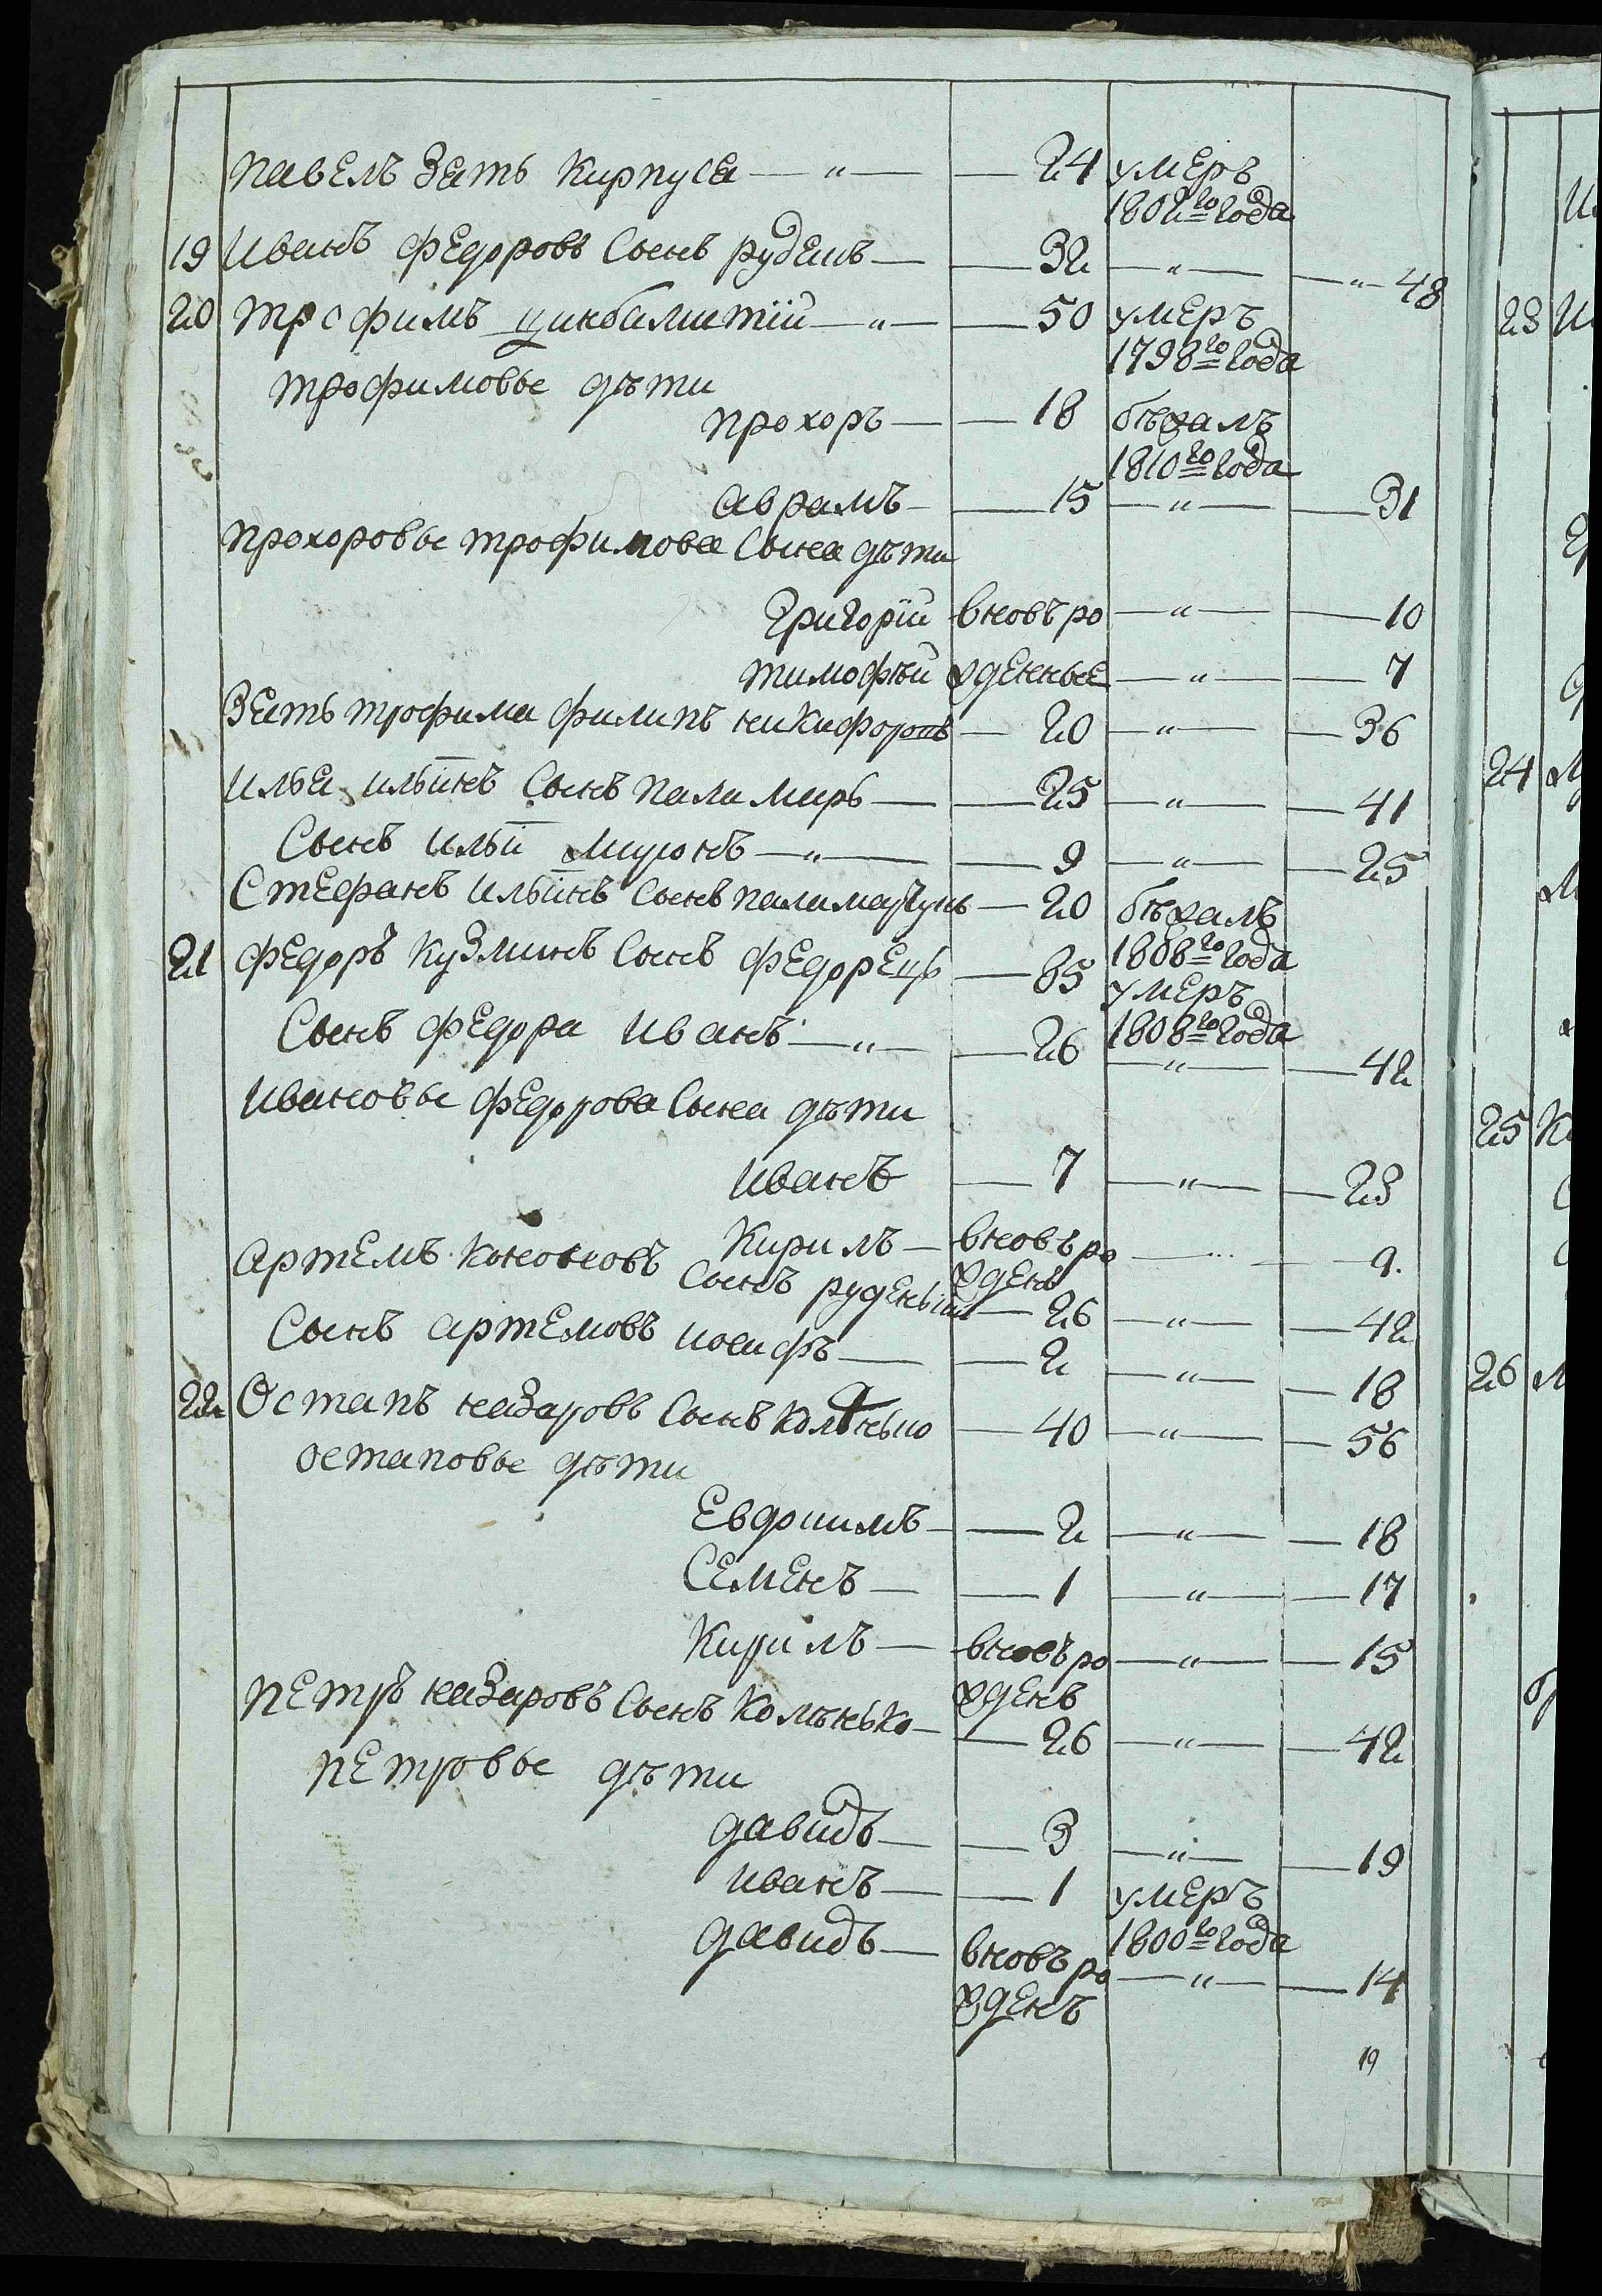 павелъ зять Кирпуса — " — — 24 умеръ
1802го года
19 Иванъ Федоровъ Сынъ рудень — — 32 — " — — " — 48
20 трофимъ цинбалистїй — " — — 50 умеръ
1798го года
трофимовы дѣти
прохоръ — — 18 бѣжалъ
1810го года
аврамъ — — 15 — " — — 31
прохоровы трофимова Сына дѣти
Григорїй вновъ ро — " — — 10
тимофѣй жденные — " — — 7
Зять трофима филипъ никифоровъ — 20 — " — — 36
илья ильинъ Сынъ паламарь — — 25 — " — — 41
Сынъ ильи миронъ — " — — 9 — " — — 25
Стефанъ ильинъ Сынъ паламарчукъ — 20 бѣжалъ
1808го года
21 Федоръ Кузминъ Сынъ Федорецъ — 85 умеръ
1808го года
Сынъ Федора Иванъ — " — — 26 — " — — 42
Ивановы Федорова Сына дѣти
Иванъ — 7 — " — — 23
Кирилъ — вновъ ро — — 9.
жденъ
артемъ Кононовъ Сынъ руденькій — 26 — " — — 42
Сынъ артемовъ иосифъ — — 2 — " — — 18
22 Остапъ назаровъ Сынъ — 40 — " — — 56
остаповы дѣти
Евдокимъ — — 2 — " — — 18
Семенъ — — 1 — " — — 17
Кирилъ — вновъ ро — " — — 15
жденъ
петръ назаровъ Сынъ Колѣнько — — 26 — " — — 42
петровы дѣти
давидъ — — 3 — " — — 19
иванъ — — 1 умеръ
1800го года
давидъ — вновъ ро — " — — 14
жденъ
19
23 И
24 М
25 К
26 М